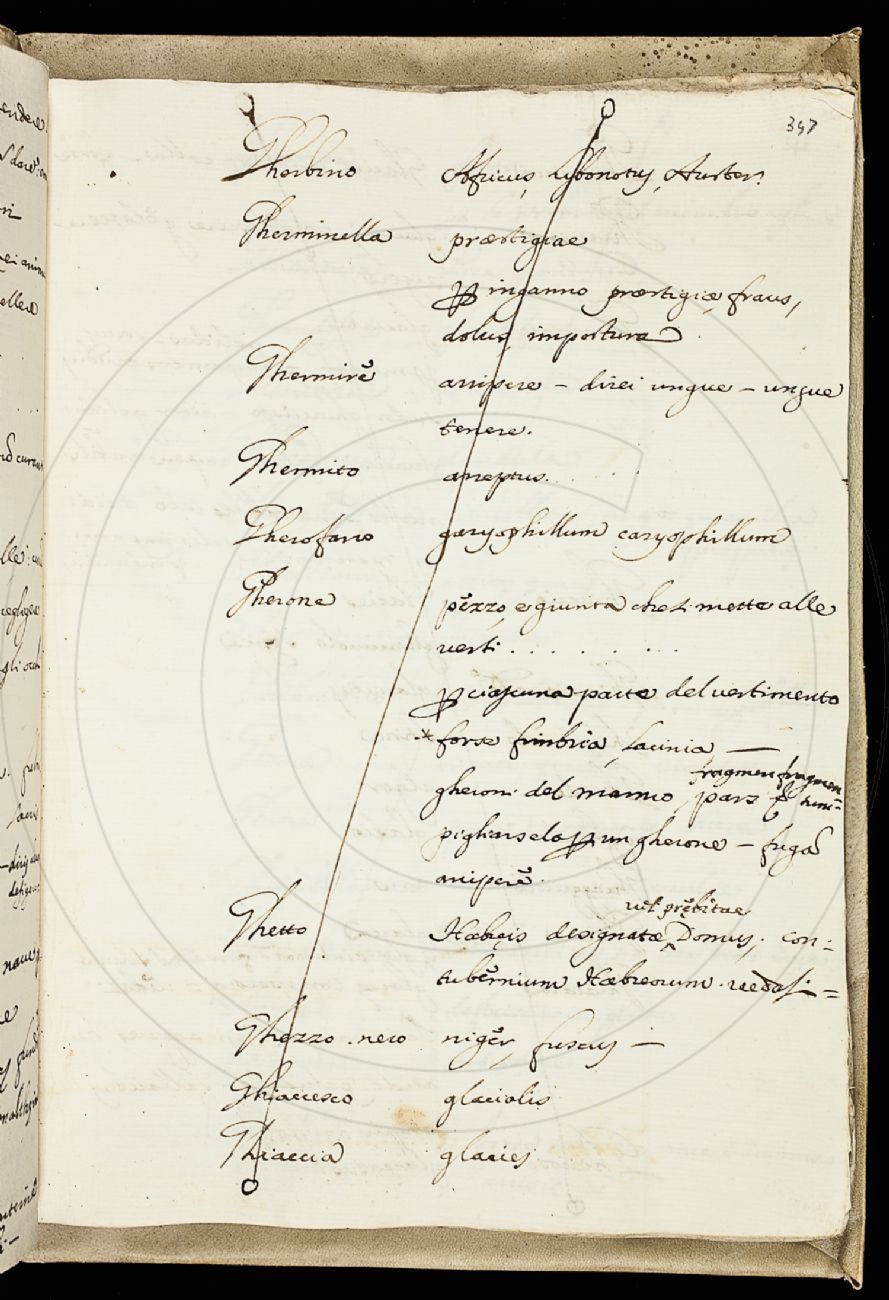 347
Gherbino Africus, Lybonotus, Auster.
Gherminella præstigiae
ꝑ inganno præstigiæ, fraus,
dolus, impostura
Ghermirè arripere – direi ungue – ungue
tenere.
Ghermito arreptus.
Gherofano garyophillum caryophillum
Gherone pezzo, e giunta che si mette alle
vesti . . . . . . . .
ꝑ ciascuna parte del vestimento
* forse fimbria, lacinia —
fragmen fragmen
gheroni del manto, pars
pigliarselo ꝑ un gherone – fugā
ariperē.
vel præbitae
Ghetto Hæbreis designatæ Domus, con:
tubernium Hæbreorum. vedasi =
Ghezzo. nero niger, fuscus —
Ghiaccesco glacialis
Ghiaccia glacies